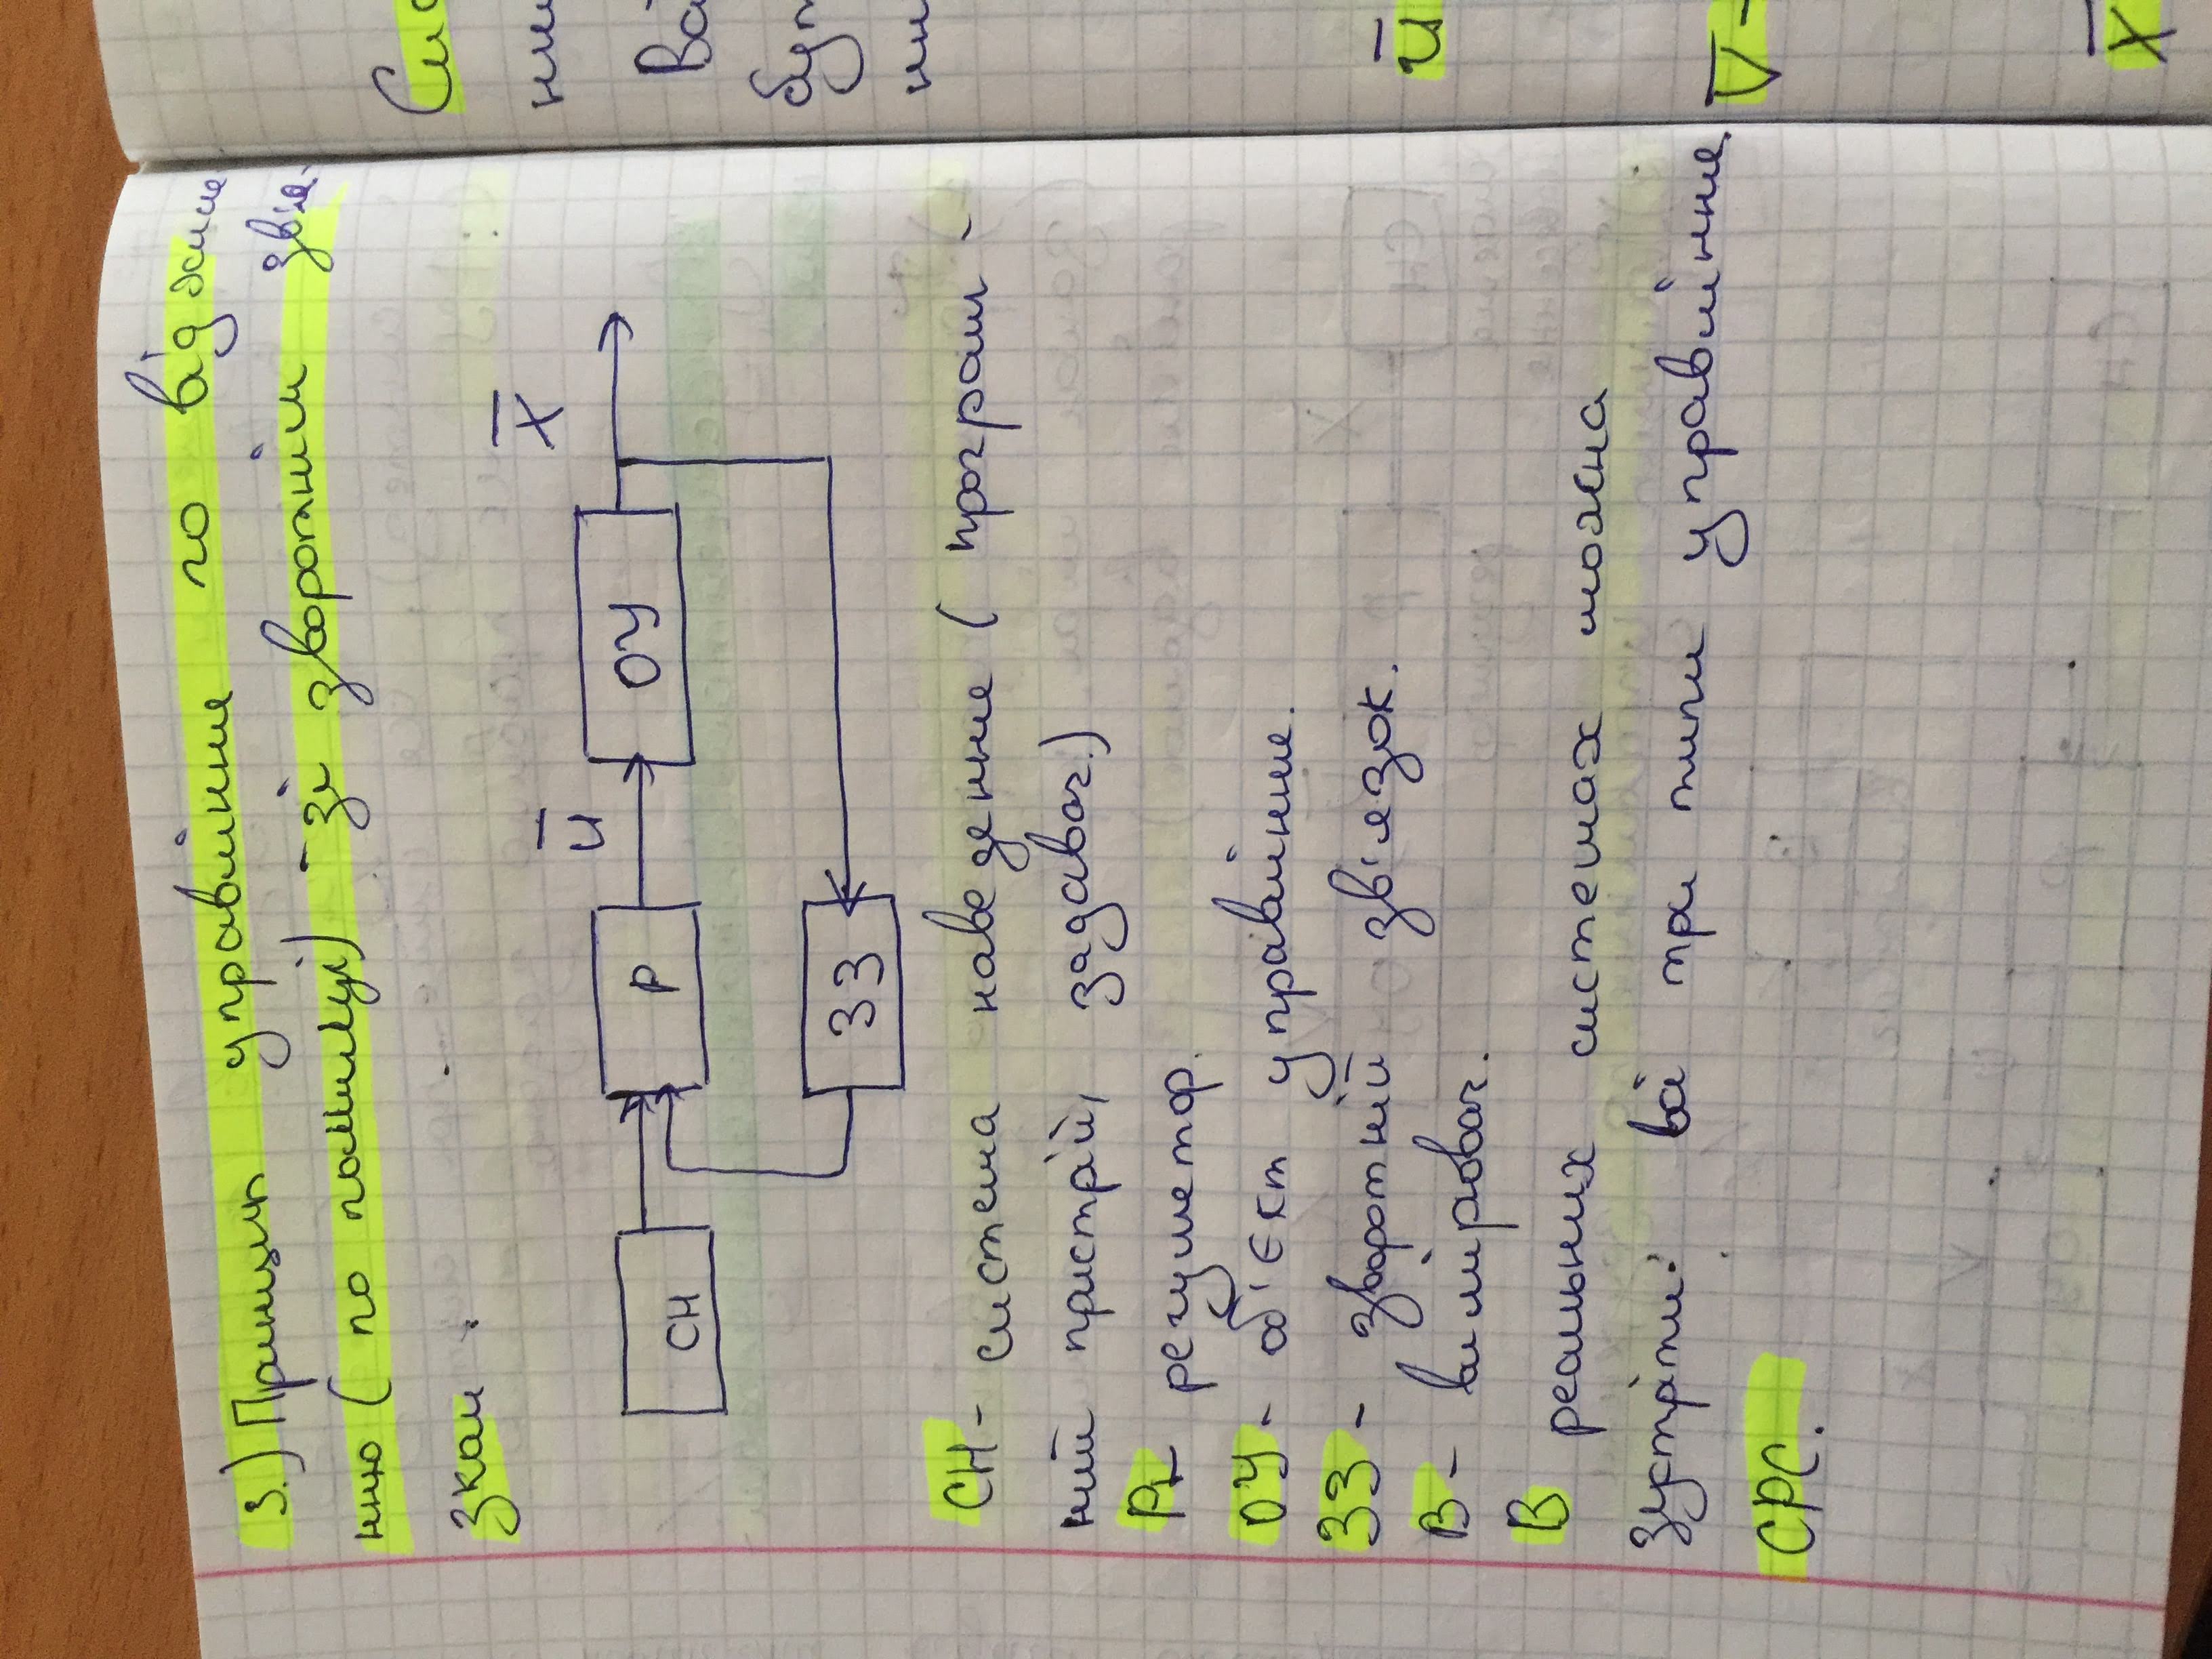 3.) Принцип управління по відхиле-
нню (по помилці) - зі зворотнім зв'я-
зком.
X̅
u̅
СН
Р
ОУ
ЗЗ
СН - система наведення ( програм -
ний пристрій, задавач.)
Р - регулятор.
ОУ - об'єкт управління.
ЗЗ - зворотній зв'язок.
В - вимірювач.
В реальних системах можна
зустріти всі три типи управління.
СРС.
u̅
V̅ -
X̅